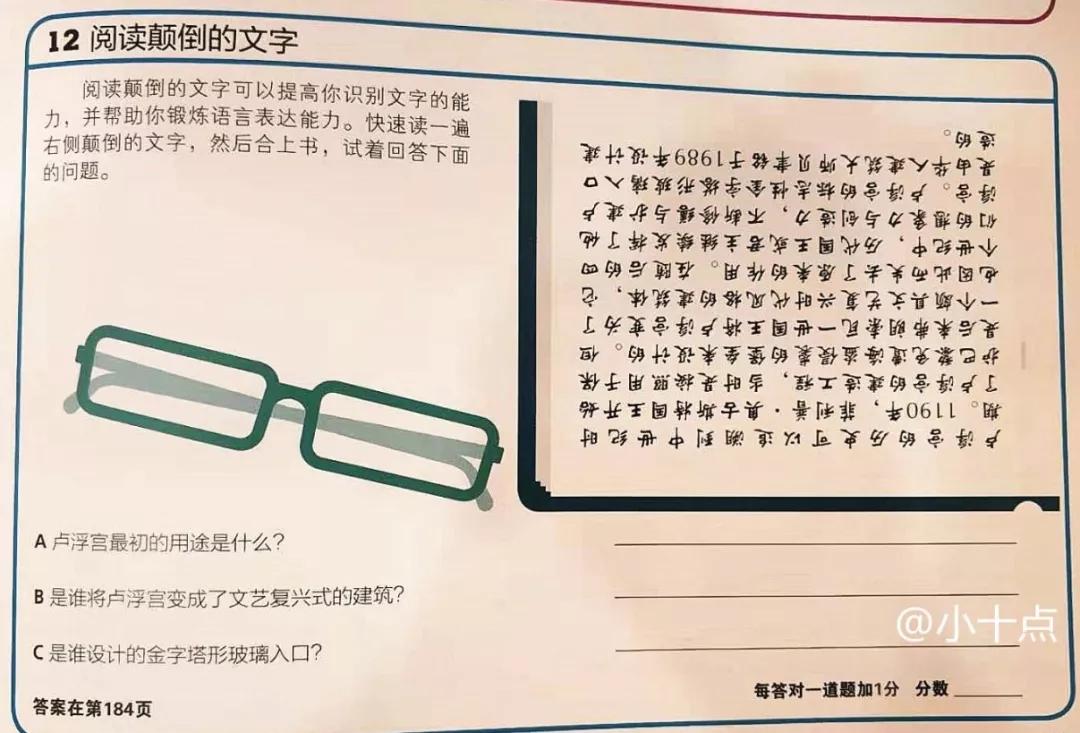 12 阅读颠倒的文字
阅读颠倒的文字可以提高你识别文字的能
力，并帮助你锻炼语言表达能力。快速读一遍
右侧颠倒的文字，然后合上书，试着回答下面
的问题。
卢浮宫的历史可以追溯到中世纪时
期。1190年，菲利普·奥古斯特国王开始
了卢浮宫的建造工程，当时是按照用于保
护巴黎免遭海盗侵袭的堡垒来设计的。但
是后来弗朗索瓦一世国王将卢浮宫变为了
一个颇具文艺复兴时代风格的建筑体，它
也因此而失去了原来的作用。在随后的四
个世纪中，历代国王或君主继续发挥了他
们的想象力与创造力，不断修缮与扩建卢
浮宫。卢浮宫的标志性金字塔形玻璃入口
是由华人建筑大师贝聿铭于1989年设计建
造的。
A 卢浮宫最初的用途是什么？
B 是谁将卢浮宫变成了文艺复兴式的建筑？
C 是谁设计的金字塔形玻璃入口？
答案在第184页
每答对一道题加1分 分数
@小十点